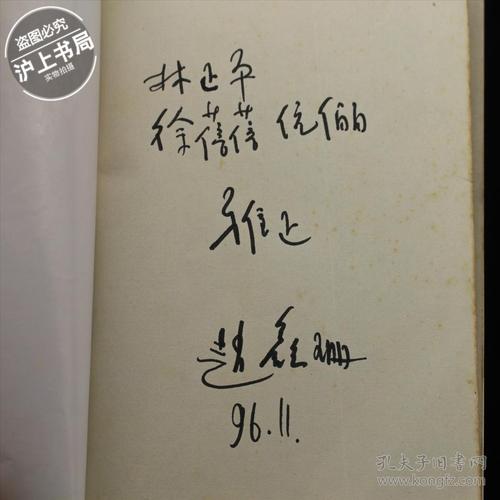 盗图必究
沪上书局
实物拍摄
林正平
徐蓓蓓 伉俪
雅正
赵
96.11.
孔夫子旧书网
www.kongfz.com